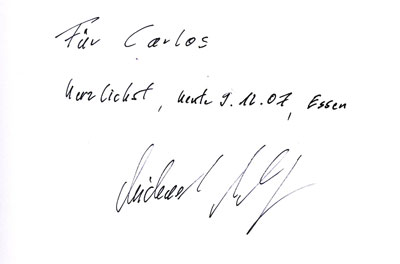 Für Carlos
Herzlichst, heute 9.12.07, Essen
Michael